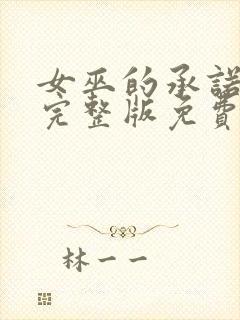 女巫的承諾
完整版免費
林一一